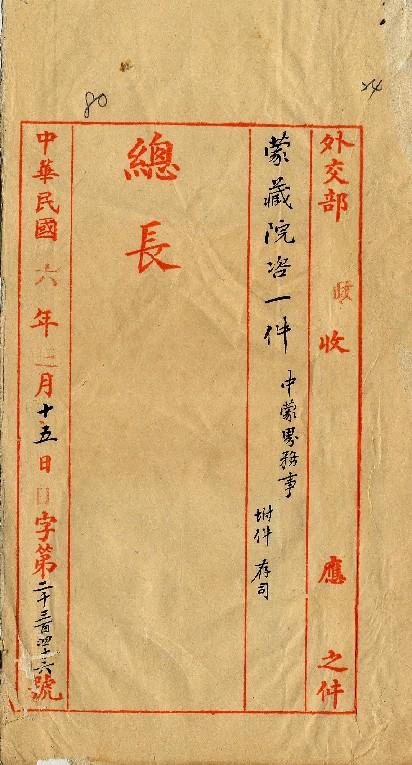 80
24
外交部 政 收 應 之件
蒙藏院咨一件 中蒙界務事 附件 存司
總長
中華民國六年 月十五日 字第二千三百四十六號